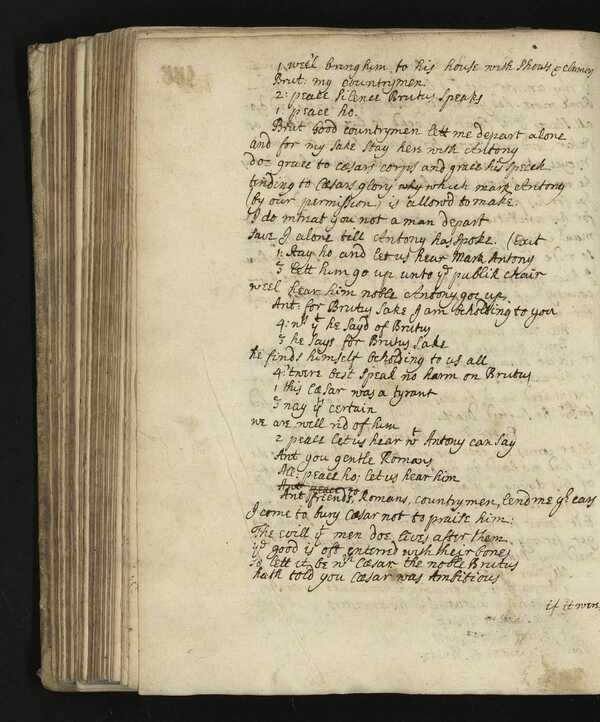 1 wee'l bring him to his house with shouts & clamors
Brut: my countrymen.
2: peace silence Brutus speaks
1: peace ho.
Brut Good countrymen lett me depart alone
and for my sake stay here with Antony
doe grace to Cæsars corps and grace his speech
tending to Cæsars glory which mark Antony
(by our permission) is allowd to make.
I do intreat you not a man depart
save I alone till Antony has spoke. (Exit
1: stay ho and let us hear Mark Antony
3 lett him go up unto ye publik chair
weel hear him noble Antony goe up.
Ant: for Brutus sake I am beholding to you
4: wt yt he sayd of Brutus
3 he says for Brutus sake
he finds himself beholding to us all
4 'twere best speak no harm on Brutus
1 this Cæsar was a tyrant
3 nay yts certain
we are well rid of him
2 peace let us hear wt Antony can say
Ant you gentle Romans
All: peace ho; let us hear him
Ant: friends, Romans, countrymen, lend me yr ears
I come to bury Cæsar not to praise him:
The evill yt men doe lives after them
ye good is oft enterred with their bones
so lett it be wth Cæsar the noble Brutus
hath told you Cæsar was Ambitious
if it were